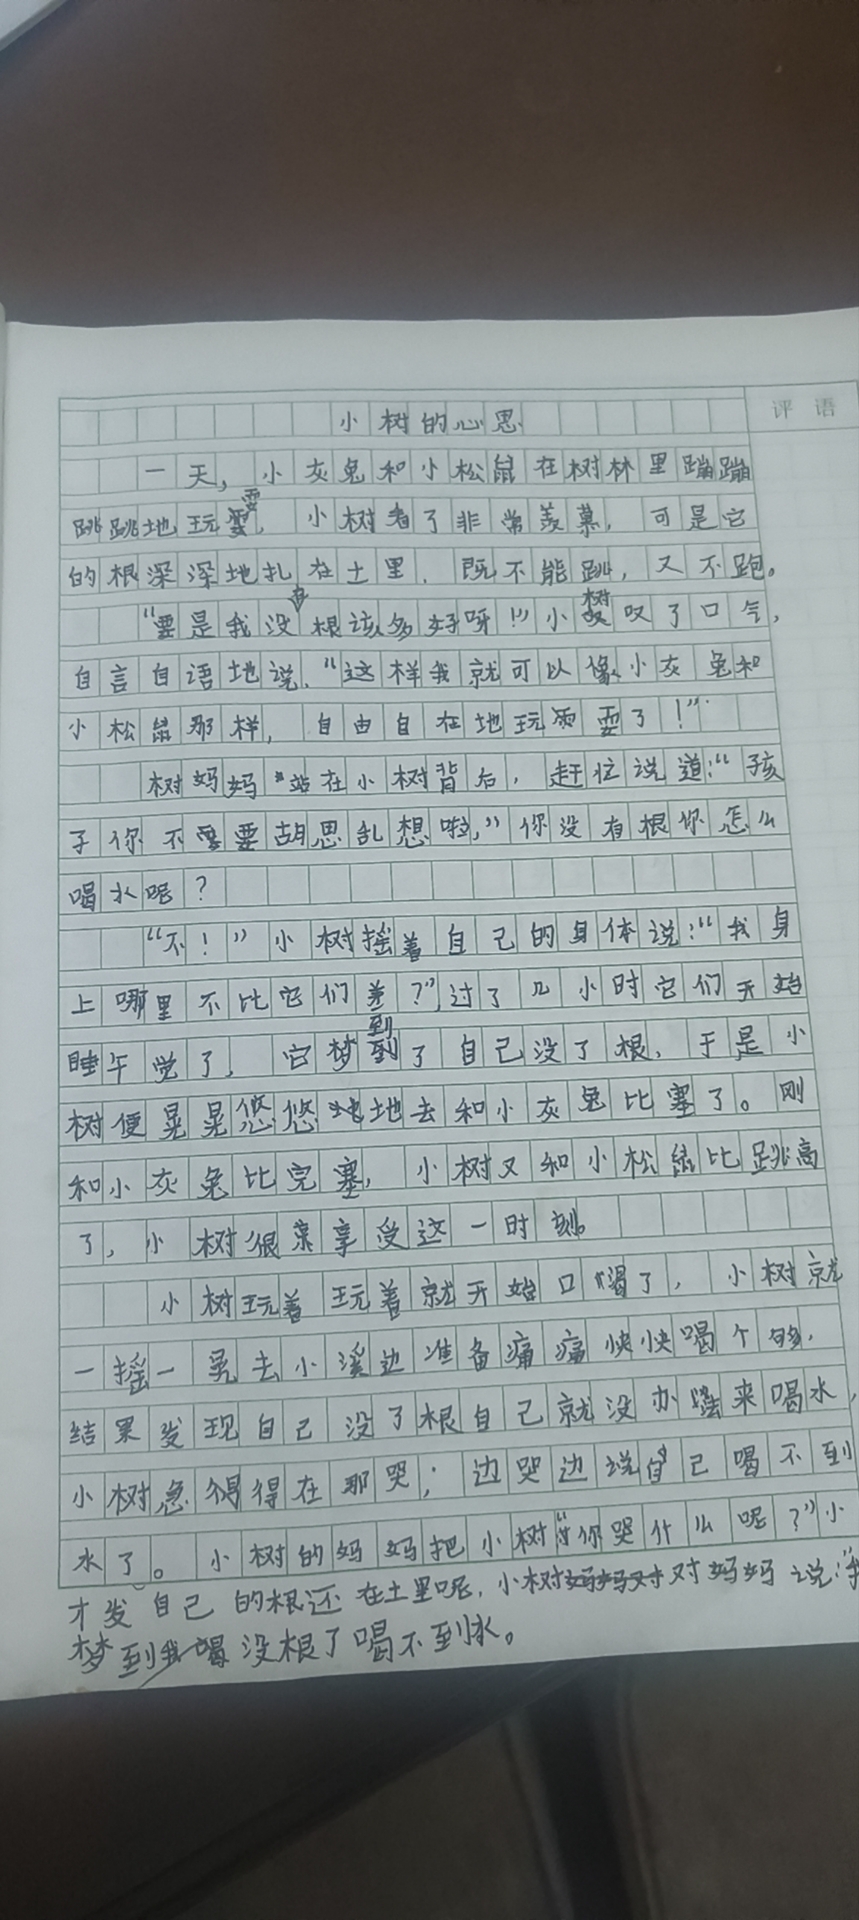 评语
小树的心思
一天，小灰兔和小松鼠在树林里蹦蹦
跳跳地玩耍，小树看了非常羡慕，可是它
的根深深地扎在土里，既不能跳，又不跑。
“要是我没有根该多好呀！”小树叹了口气，
自言自语地说，“这样我就可以像小灰兔和
小松鼠那样，自由自在地玩耍了！”
树妈妈站在小树背后，赶忙说道：“孩
子你不要胡思乱想啦，”你没有根你怎么
喝水呢？
“不！”小树摇着自己的身体说：“我身
上哪里不比它们差？”过了几小时它们开始
睡午觉了，它梦到了自己没了根，于是小
树便晃晃悠悠地去和小灰兔比塞了。刚
和小灰兔比完塞，小树又和小松鼠比跳高
了，小树很享受这一时刻。
小树玩着玩着就开始口渴了，小树就
一摇一晃去小溪边准备痛痛快快喝个够，
结果发现自己没了根自己就没办法来喝水，
小树急得在那哭；边哭边说自己喝不到
水了。小树的妈妈把小树“你哭什么呢？”小
才发自己的根还在土里呢，小树对妈妈说：“我
梦到没根了喝不到水。